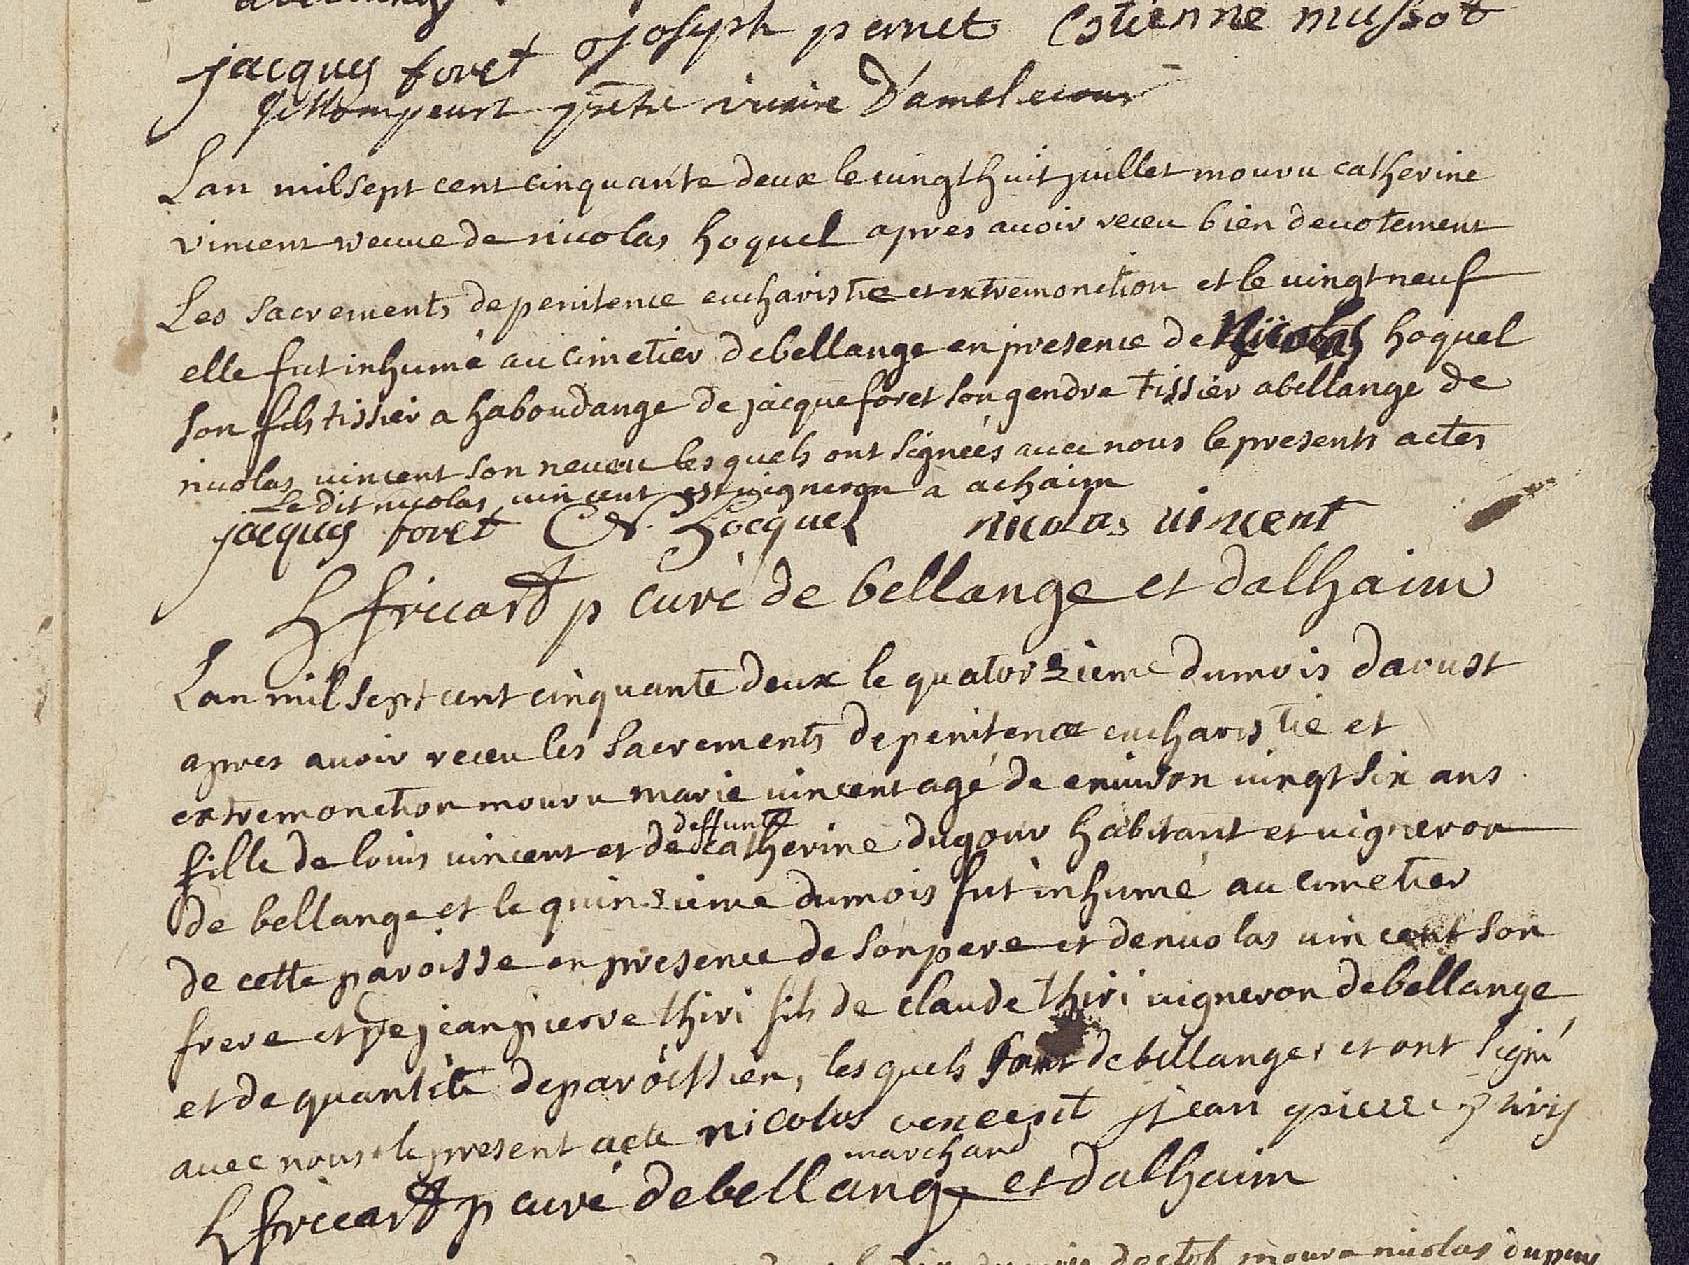 jacques foret Joseph pernet Estienne mussot
prêtre vicaire D'amelecour
Lan mil sept cent cinquante deux le vingt huit juillet mouru catherine
vincent veuve de nicolas hoquel apres avoir receu bien devotement
Les sacrements de penitence eucharistie et extremonction et le vingt neuf
elle fut inhumé au cimetier de bellange en presence de Nicolas hoquel
son fils tissier a haboudange de jacque foret son gendre tissier a bellange de
nicolas vincent son neveu les quels ont signées avec nous le presents actes
Le dit nicolas vincent est vigneron a achaim
jacques foret N. Hocquel nicolas vincent
H fricart p curé de bellange et dalhaim
Lan mil sept cent cinquante deux le quatorzieme du mois daoust
apres avoir receu les sacrements de penitence eucharistie et
extremonction mouru marie vincent agé de environ vingt six ans
fille de louis vincent et de deffunte catherine dugour habitant et vigneron
de bellange et le quinzieme du mois fut inhumé au cimetier
de cette paroisse en presence de son pere et de nicolas vincent son
frere et de jean pierre thiri fils de claude thiri vigneron de bellange
et de quantité de paroissien, les quels sont de bellange, et ont signé
avec nous le present acte nicolas vencent jean pierre thiry
marchand
H fricart p curé de bellange et dalhaim
doctob mouru nicolas dupuis